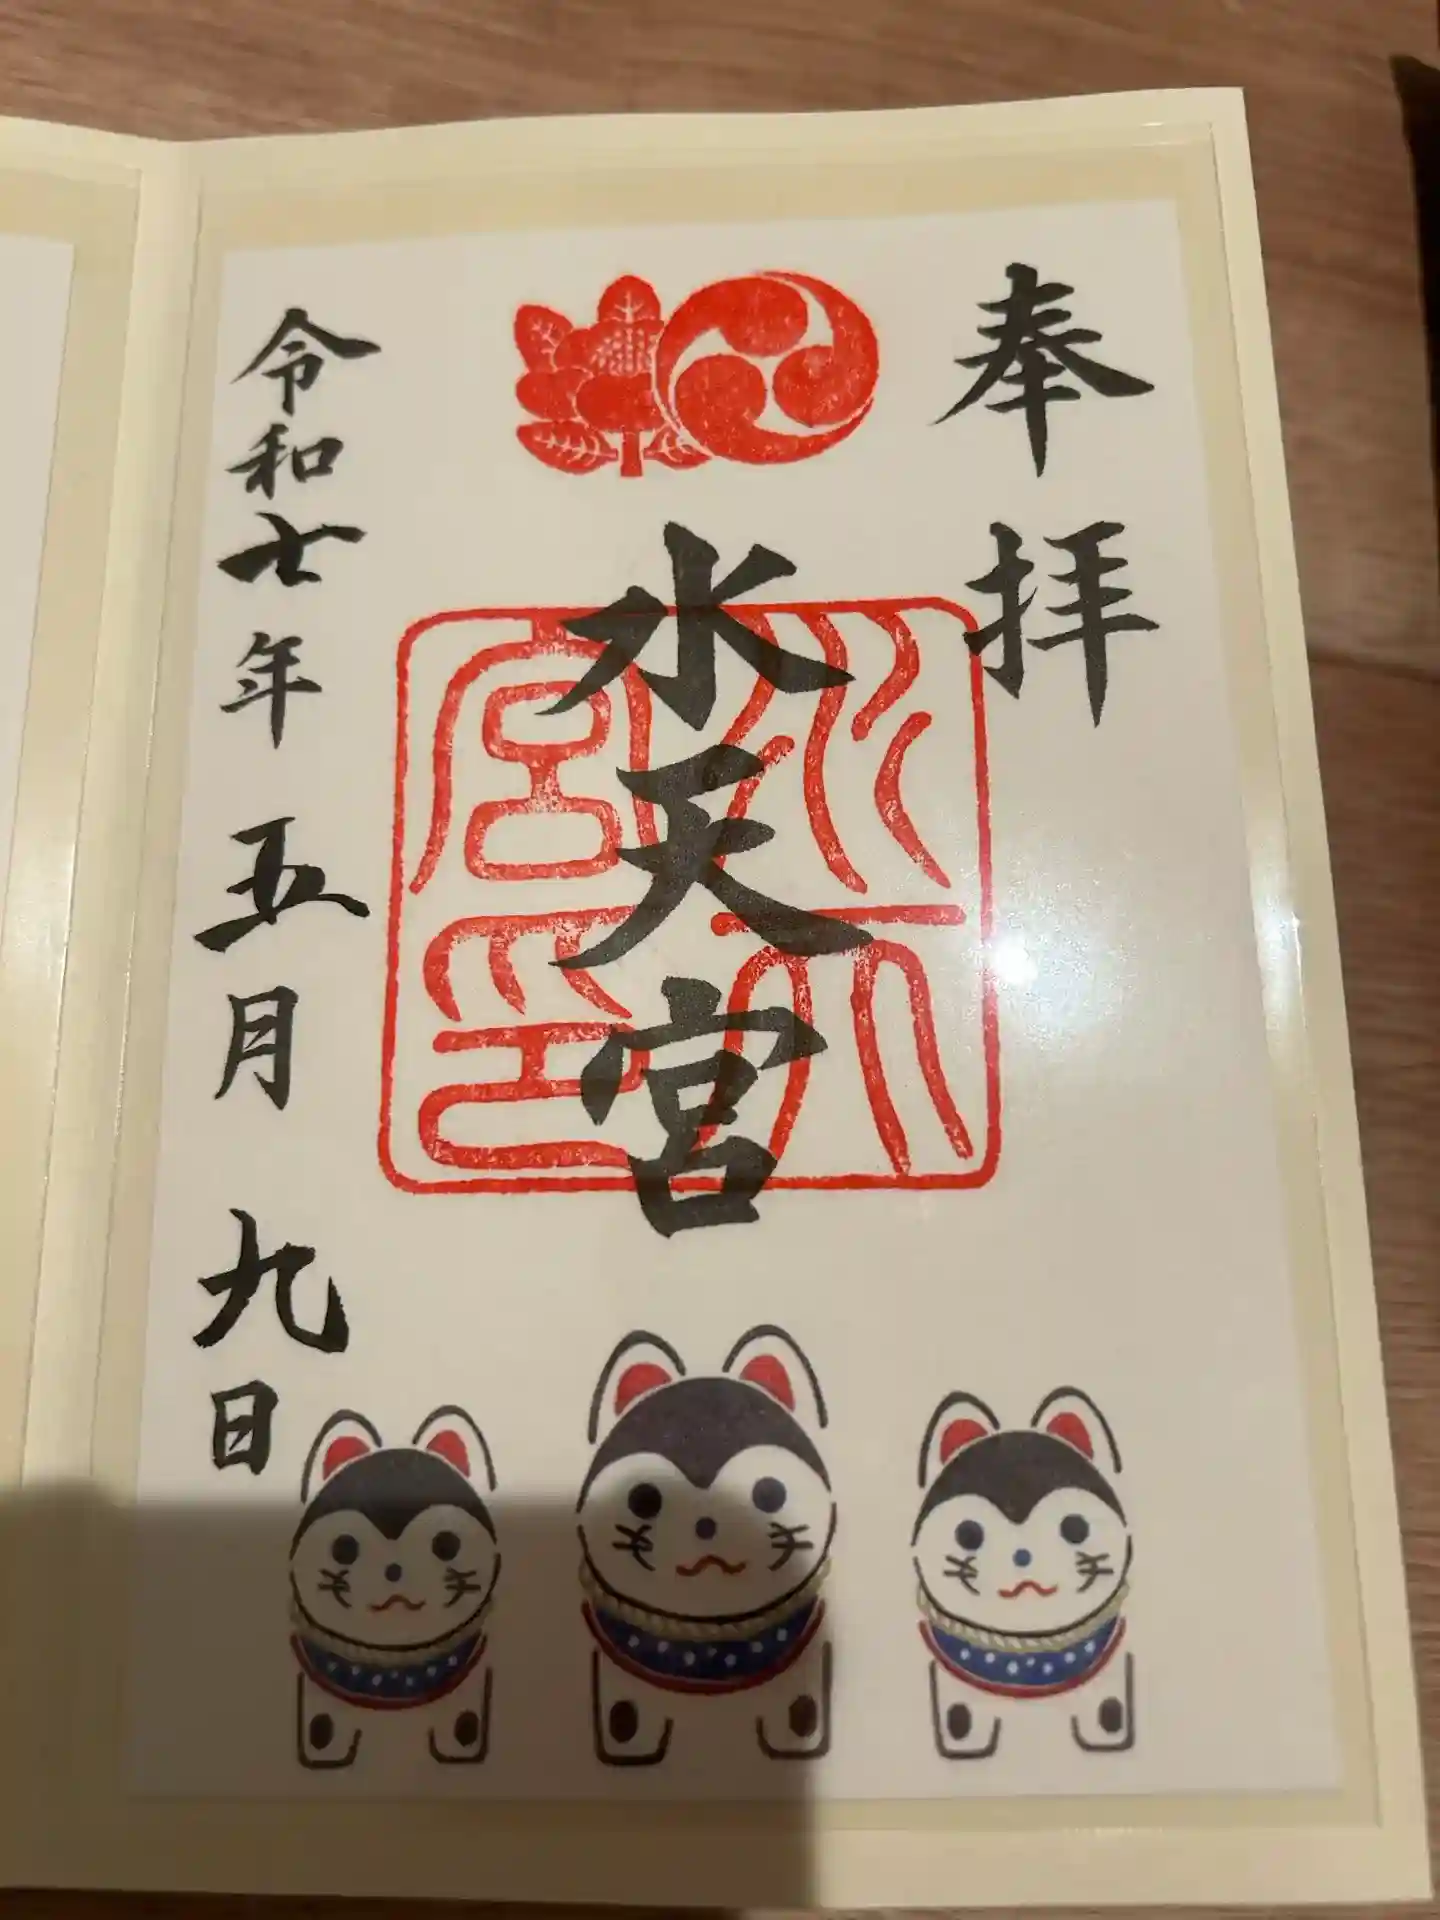 奉拝
水天宮
水天宮印
令和七年五月九日